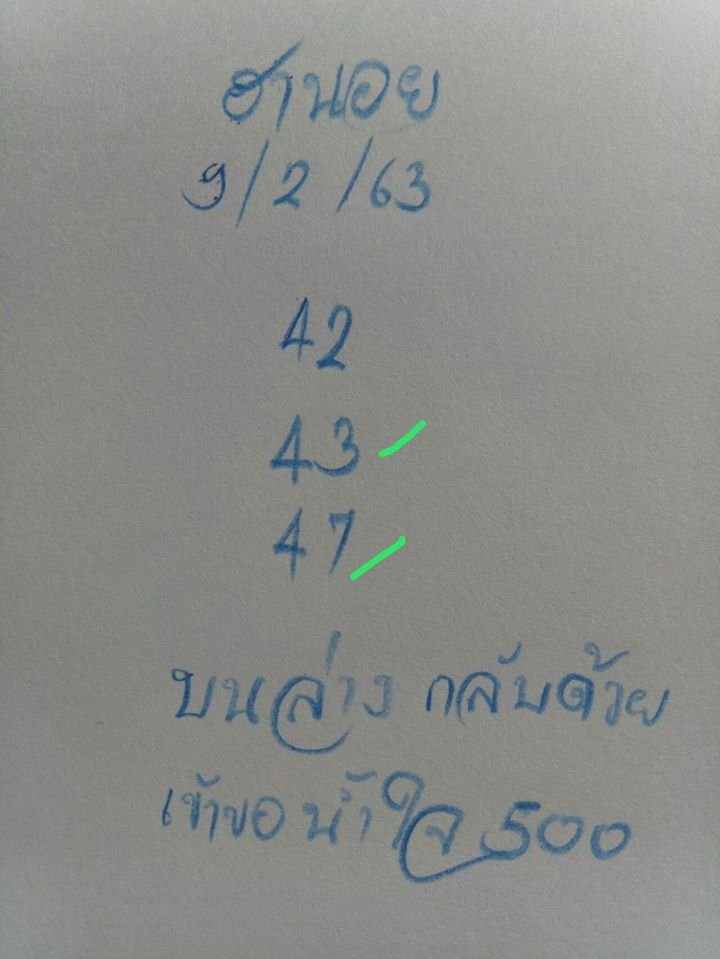 ฮานอย
9/2/63
42
43
47
บนล่าง กลับด้วย
เข้าขอน้ำใจ 500